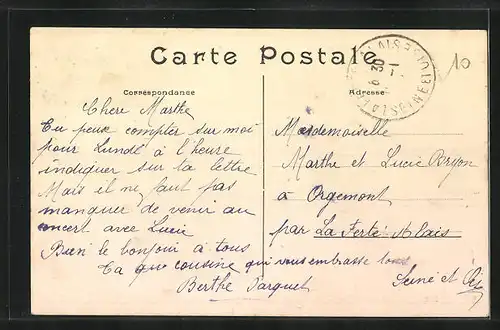 Carte Postale
Correspondance
Adresse
10
6 30
Chere Marthe
Tu peux compter sur moi
pour Lundi à l'heure
indiquer sur ta lettre
Mais il ne faut pas
manquer de venir au
concert avec Lucie
Bien le bonjour à tous
Ta cousine qui vous embrasse tous
Berthe Parquet
Mesdemoiselle
Marthe et Lucie Bryon
à Orgemont
par La Ferté Alais
Seine et